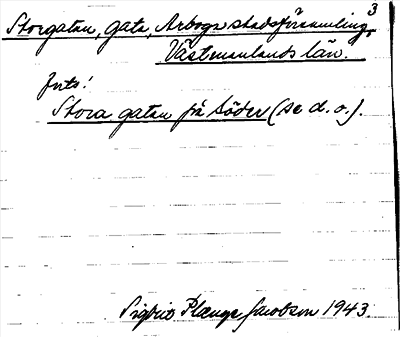 3
Storgatan, gata, Arboga stadsförsamling,
Västmanlands län.
Förts:
Stora gatan på Söder (se d. o.).
Sigbrit Plænge Jacobson 1943.